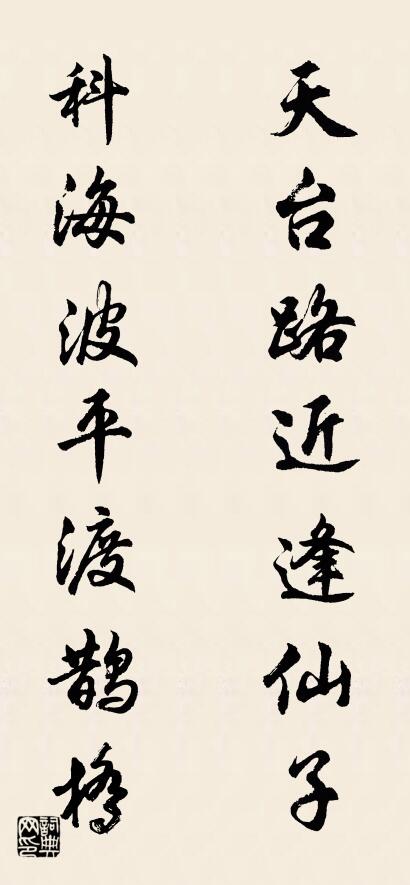 天台路近逢仙子
科海波平渡鹊桥
词典网印